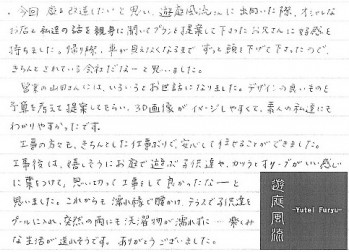 ・今回 庭を改造したいと思い、遊庭風流さんに出向いた際、オシャレな
お店と私達の話を親身に聞いてプランを提案して下さったお兄さんに好感を
持ちました。帰り際、車が見えなくなるまでずっと頭を下げて下さったので、
きちんとされている会社だなーと思いました。
営業の山田さんには、いろいろとお世話になりました。デザインの良いものを
予算を考えて提案してもらい、3D画像がイメージしやすくて、素人の私達にも
わかりやすかったです。
工事の方も、きちんとした仕事ぶりで、安心してまかせることができました。
工事後は、嬉しそうにお庭で遊ぶ子供達や、カツラとオリーブがいい感じ
に葉をつけて、思い切って工事をして良かったなーと
思いました。これからも濡れ縁で腰かけ、テラスで子供達を
プールに入れ、突然の雨にも洗濯物が濡れずに… 楽しみ
な生活が送れそうです。ありがとうございました。
遊庭風流
-Yutei Furyu-